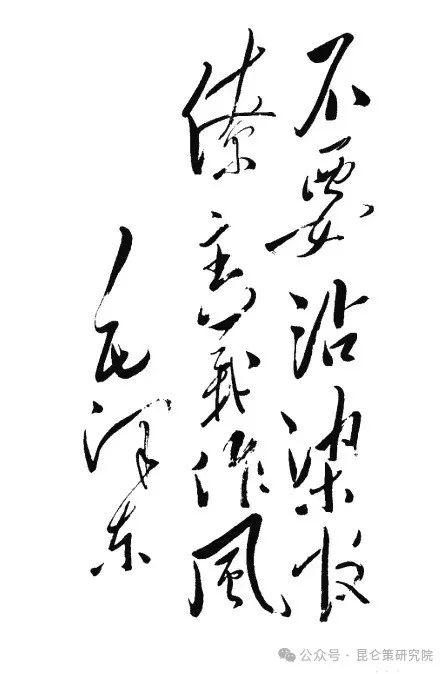 不要沾染官
僚主義作風
毛泽东
公众号·昆仑策研究院